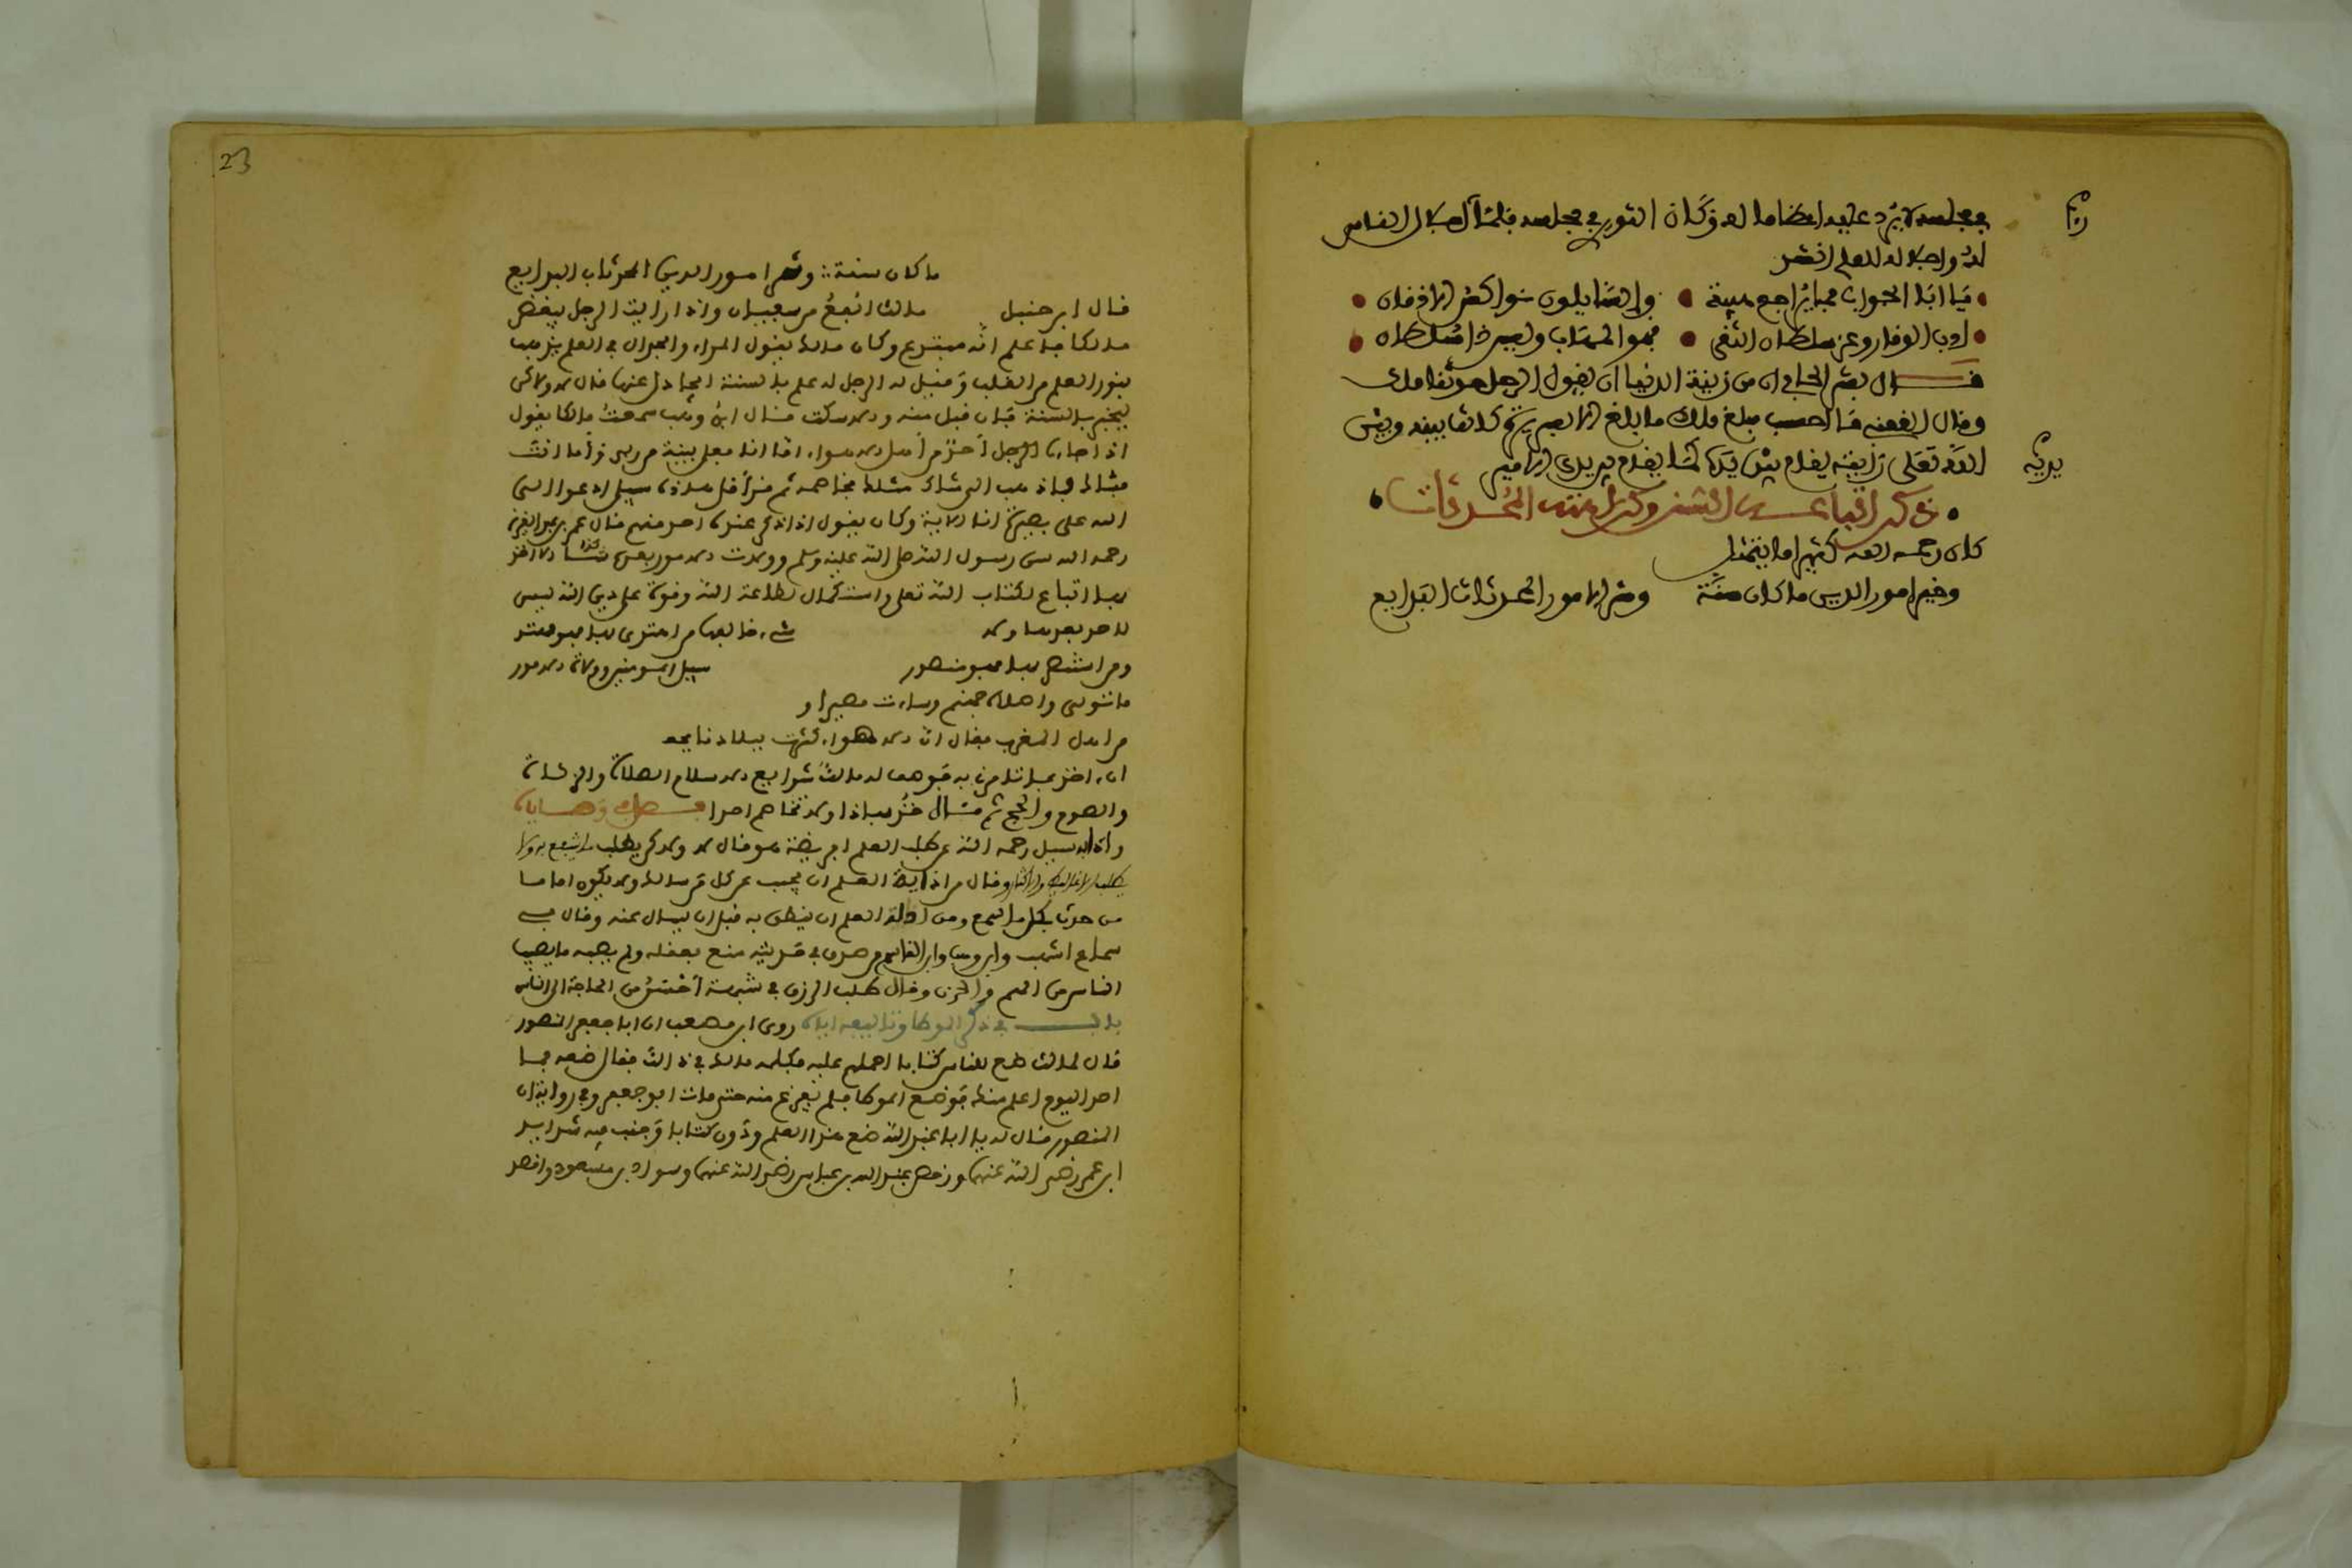 في مجلسه لا يرد عليه اعظاما له وكان الثوري في مجلسه فلما رأى اجلال الناس
له واجلاله للعلم انشد
يابى الجواب فما يراجع هيبة • والسايلون نواكس الاذقان
ادب الوقار وعز سلطان التقى • فهو المهاب وليس ذا سلطان
قال بشر الحافي ان من زينة الدنيا ان يقول الرجل حدثنا ملك
وقال القعنبي ما احسب بلغ ملك ما بلغ الا بسريرة كانت بينه وبين
الله تعالى رايته يقام بين يديه كما يقام بين يدي الامير
يديه
ذكر اتباعه السنن وكراهيته المحدثات
كان رحمه الله كثيرا ما يتمثل
وخير امور الدين ما كان سنة وشر الامور المحدثات البدايع
23
ما كان سنة وشر امور الدين المحدثات البدايع
قال ابن حنبل مالك اتبع من سفيان واذا رايت الرجل يبغض
مالكا فاعلم انه مبتدع وكان مالك يقول المراء والجدال في العلم يذهب
بنور العلم من القلب وقيل له الرجل له علم بالسنة ايجادل عنها قال لا ولاكن
ليخبر بالسنة فان قبل منه والا سكت قال ابن وهب سمعت مالكا يقول
اذا جاءه الرجل من اهل الاهواء اما انا فعلى بينة من ربي واما انت
فشاك فاذهب الى شاك مثلك فخاصمه ثم قرأ قل هذه سبيلي ادعوا الى
الله على بصيرة انا الاية وكان يقول اذا ذكر عنده احد منهم قال عمر بن عبد العزيز
رحمه الله سن رسول الله صلى الله عليه وسلم وولاة الامور بعده سننا الاخذ
بها اتباع لكتاب الله تعالى واستكمال لطاعة الله وقوة على دين الله ليس
لاحد بعد هذا شيء خالفها من اهتدى بها فهو مهتد
ومن استنصر بها فهو منصور سبيل المومنين وولاه الامور
ما تولى واصلاه جهنم وساءت مصيرا و
من اهل المغرب فقال ان الاهواء كثرت ببلادنا
ان اخذ بما تامرني به فوصف له مالك شرايع الاسلام الصلاة والزكاة
والصوم والحج ثم قال خذ بهاذا ولا تخاصم احدا فصل في وصاياه
سيل رحمه الله عن طلب العلم افريضة هو فقال لا ولاكن يطلب ما ينتفع به ولا
يطلب وقال من العلم ان يجيب عن كل من ساله ولا يكون اماما
من حدث بكل ما سمع ومن اذلة العلم ان ينطق به قبل ان يسال عنه وقال في
سماع اشهب وابن وهب وابن القاسم من صدق في حديثه متع بعقله ولم يصبه ما يصيب
الناس من الهم والحزن وقال طلب الرزق في شبهة احسن من الحاجة الى الناس
باب في ذكر الموطا وتاليفه اياه روى ابو مصعب ان ابا جعفر المنصور
قال لمالك ضع للناس كتابا احملهم عليه فكلمه مالك في ذالك فقال ضعه فما
احد اليوم اعلم منك فوضع الموطا فلم يفرغ منه حتى مات ابو جعفر وفي رواية ان
المنصور قال له يا ابا عبد الله ضع هذا العلم ودون كتابا وجنب فيه شدايد
ابن عمر رضي الله عنهما ورخص عبد الله بن عباس رضي الله عنهما وشواذ ابن مسعود واقصد